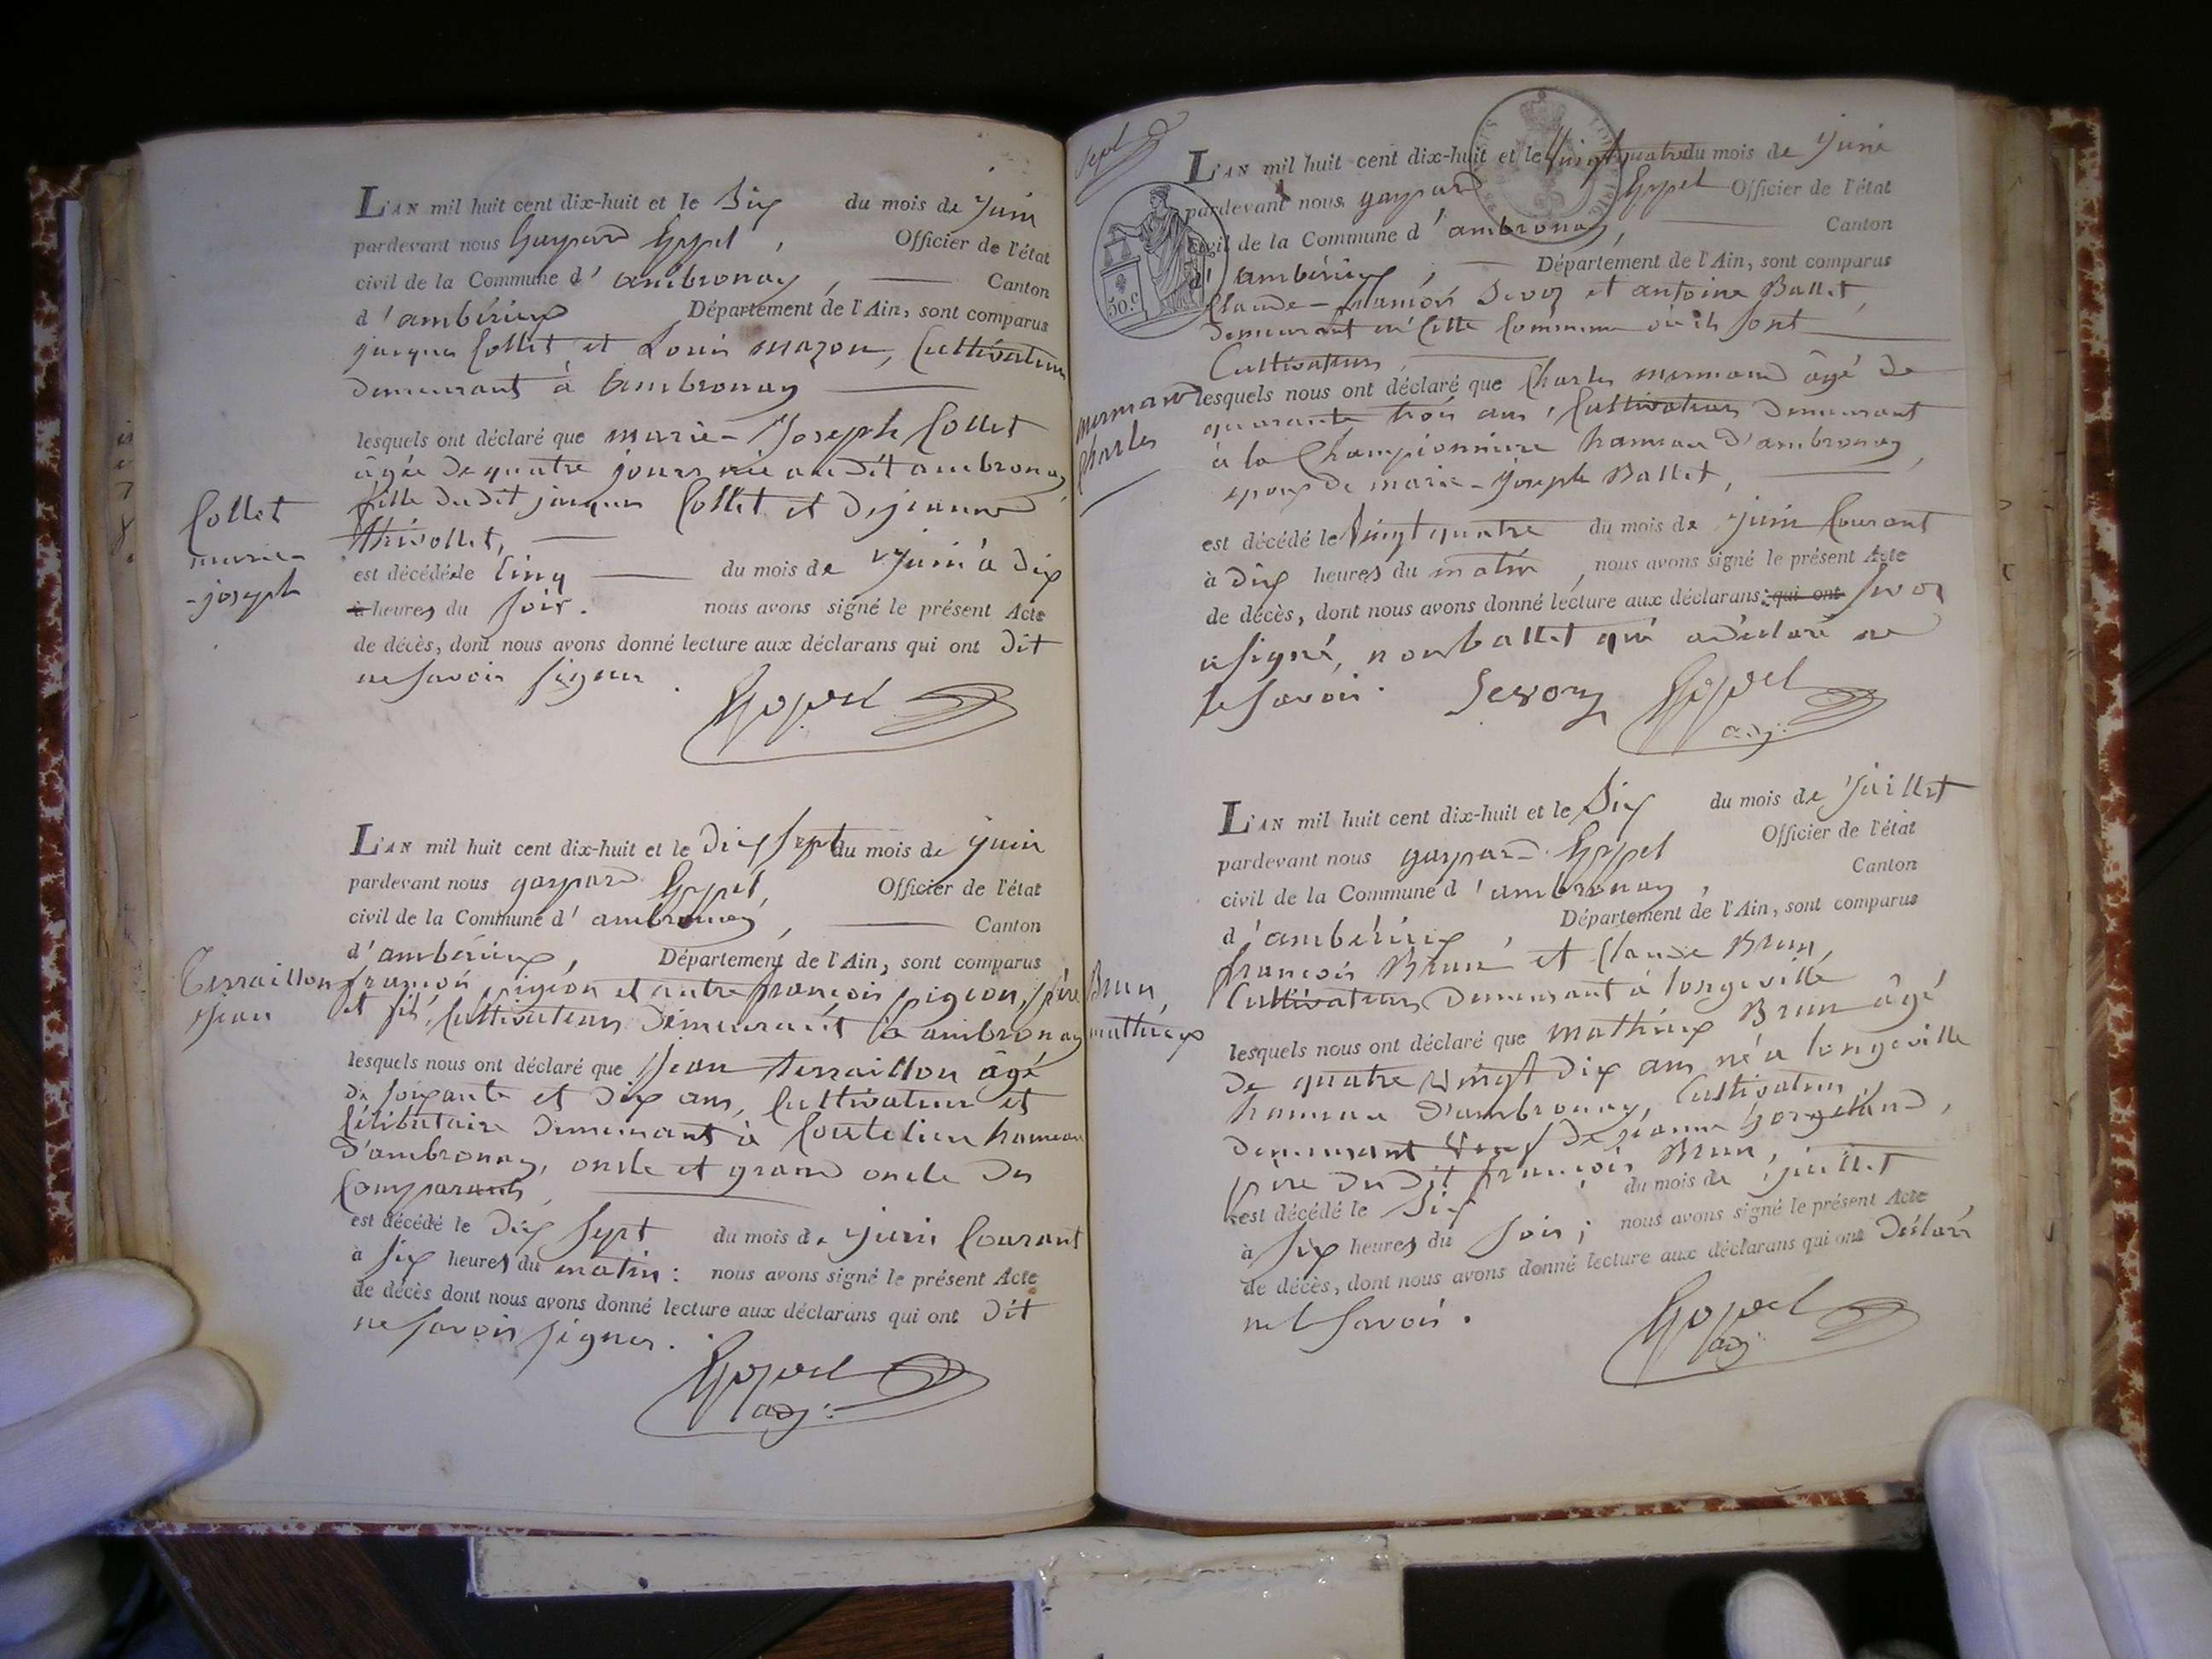 L'AN mil huit cent dix-huit et le Six du mois de juin
pardevant nous Gaspard Eppel, Officier de l'état
civil de la Commune d'ambronay, Canton
d'ambérieux Département de l'Ain, sont comparus
jacques Collet et Louis mazon, Cultivateurs
demeurant à ambronay
lesquels ont déclaré que marie-Joseph Collet
âgée de quatre jours née au dit ambronay
Collet fille du dit jacques Collet et de jeanne
thivollet,
marie-
-joseph
est décédée le Cinq du mois de juin à dix
à heures du soir. nous avons signé le présent Acte
de décès, dont nous avons donné lecture aux déclarans qui ont dit
ne savoir signer.
Eppel
L'AN mil huit cent dix-huit et le dix sept du mois de juin
pardevant nous gaspard Eppel, Officier de l'état
civil de la Commune d'ambronay, Canton
d'ambérieux, Département de l'Ain, sont comparus
Terraillon
Jean
françois pigeon et autre françois pigeon, père
et fils, Cultivateurs demeurant à ambronay
lesquels nous ont déclaré que Jean terraillon âgé
de soixante et dix ans, Cultivateur et
Célibataire demeurant à Coutelieu hameau
d'ambronay, oncle et grand oncle des
Comparants,
est décédé le dix sept du mois de juin Courant
à six heures du matin: nous avons signé le présent Acte
de décès dont nous avons donné lecture aux déclarans qui ont dit
ne savoir signer.
Eppel
adj:
sept
L'AN mil huit cent dix-huit et le Vingt quatre du mois de juin
pardevant nous gaspard Eppel Officier de l'état
civil de la Commune d'ambronay, Canton
d'ambérieux, Département de l'Ain, sont comparus
50.c
Claude-françois Sevoz et antoine Ballet,
demeurant en Cette Commune où ils sont
Cultivateurs,
mermand
Charles
lesquels nous ont déclaré que Charles mermand âgé de
quarante trois ans, Cultivateur demeurant
à la Championnière hameau d'ambronay,
epoux de marie-Joseph Ballet,
est décédé le Vingt quatre du mois de juin Courant
à dix heures du matin, nous avons signé le présent Acte
de décès, dont nous avons donné lecture aux déclarans; qui ont Sevoz
a signé, non ballet qui a déclaré ne
le savoir. Sevoz Eppel
adj:
L'AN mil huit cent dix-huit et le Six du mois de juillet
pardevant nous gaspard Eppel Officier de l'état
civil de la Commune d'ambronay, Canton
d'ambérieux, Département de l'Ain, sont comparus
Brun,
mathieux
françois Brun et Claude Brun,
Cultivateurs demeurant à longeville
lesquels nous ont déclaré que mathieux Brun âgé
de quatre Vingt dix ans né à longeville
hameau d'ambronay, Cultivateur y
demeurant Veuf de jeanne
père du dit françois Brun,
est décédé le Six du mois de juillet
à six heures du soir; nous avons signé le présent Acte
de décès, dont nous avons donné lecture aux déclarans qui ont déclaré
ne le savoir.
Eppel
adj